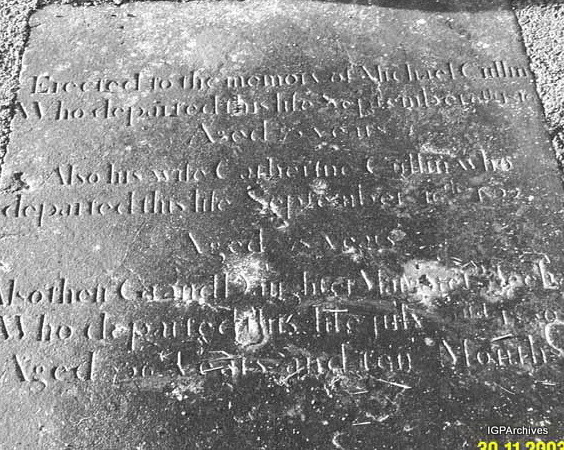 Erected to the memory of Michael Cullin
Who departed this life September
Aged years
Also his wife Catherine Cullin who
departed this life September
Aged years
Also their Grand Daughter Margaret
Who departed this life July
Aged years and ten Months
IGPArchives
30.11.2003